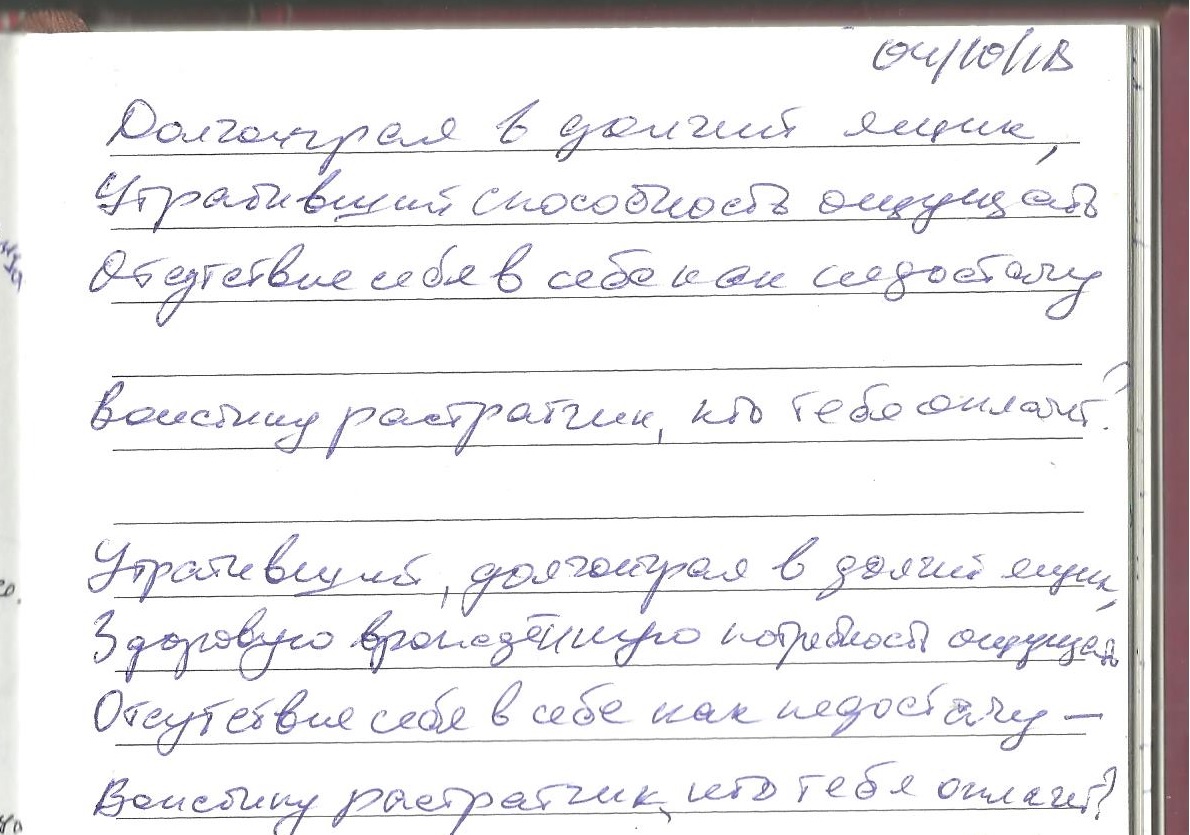 04/10/18
Долгоиграя в долгий ящик,
Утративший способность ощущать
Отсутствие себя в себе как недостачу
Воистину растратчик, кто тебя оплачет?
Утративший, долгоиграя в долгий ящик,
Здоровую врождённую потребность ощущать
Отсутствие себя в себе как недостачу —
Воистину растратчик, кто тебя оплачет?